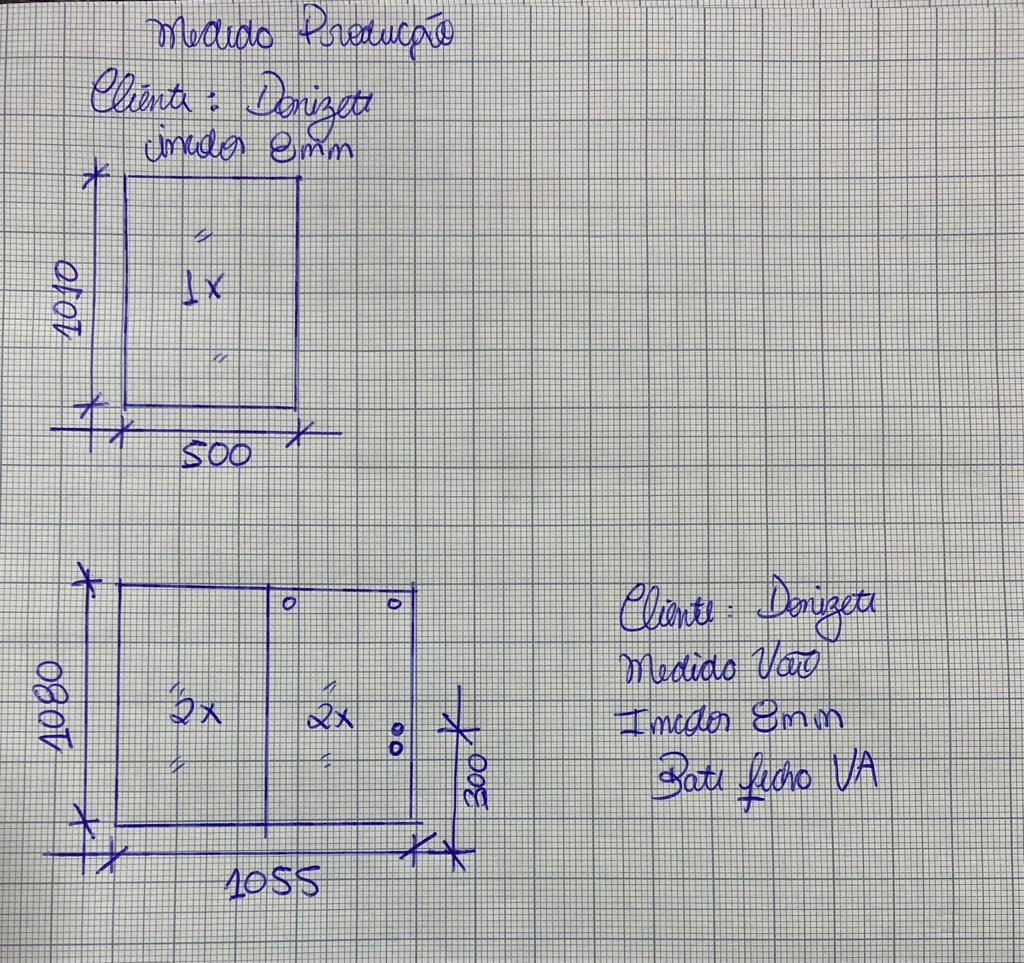 Medida Producção
Cliente: Donizeti
incolor 8mm
1010
1x
500
1080
2x
2x
300
1055
Cliente: Donizeti
Medida Vão
Incolor 8mm
Bate fecho VA